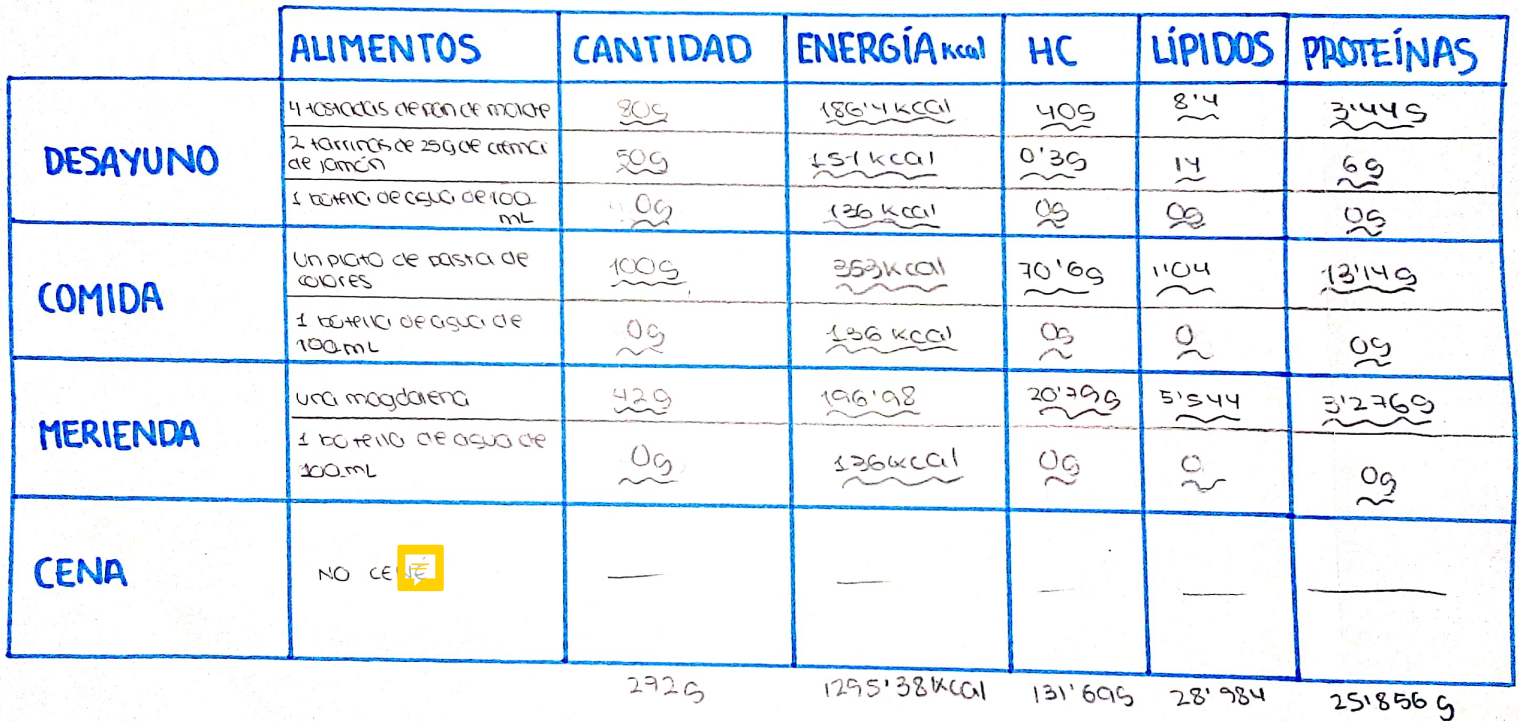 ALIMENTOS CANTIDAD ENERGÍA kcal HC LÍPIDOS PROTEÍNAS
DESAYUNO
4 tostadas de pan de molde 80g 186'4 kcal 40g 8'4 3'44g
2 tarrinas de 25g de crema
de jamón 50g 151 kcal 0'3g 14 6g
1 botella de agua de 100
mL 0g 136 kcal 0g 0g 0g
COMIDA
un plato de pasta de
colores 100g 353 kcal 70'6g 1'04 13'14g
1 botella de agua de
100mL 0g 136 kcal 0g 0 0g
MERIENDA
una magdalena 42g 196'98 20'79g 5'544 3'276g
1 botella de agua de
100mL 0g 136 kcal 0g 0 0g
CENA
NO CENÉ
272g 1295'38 kcal 131'69g 28'984 25'856g